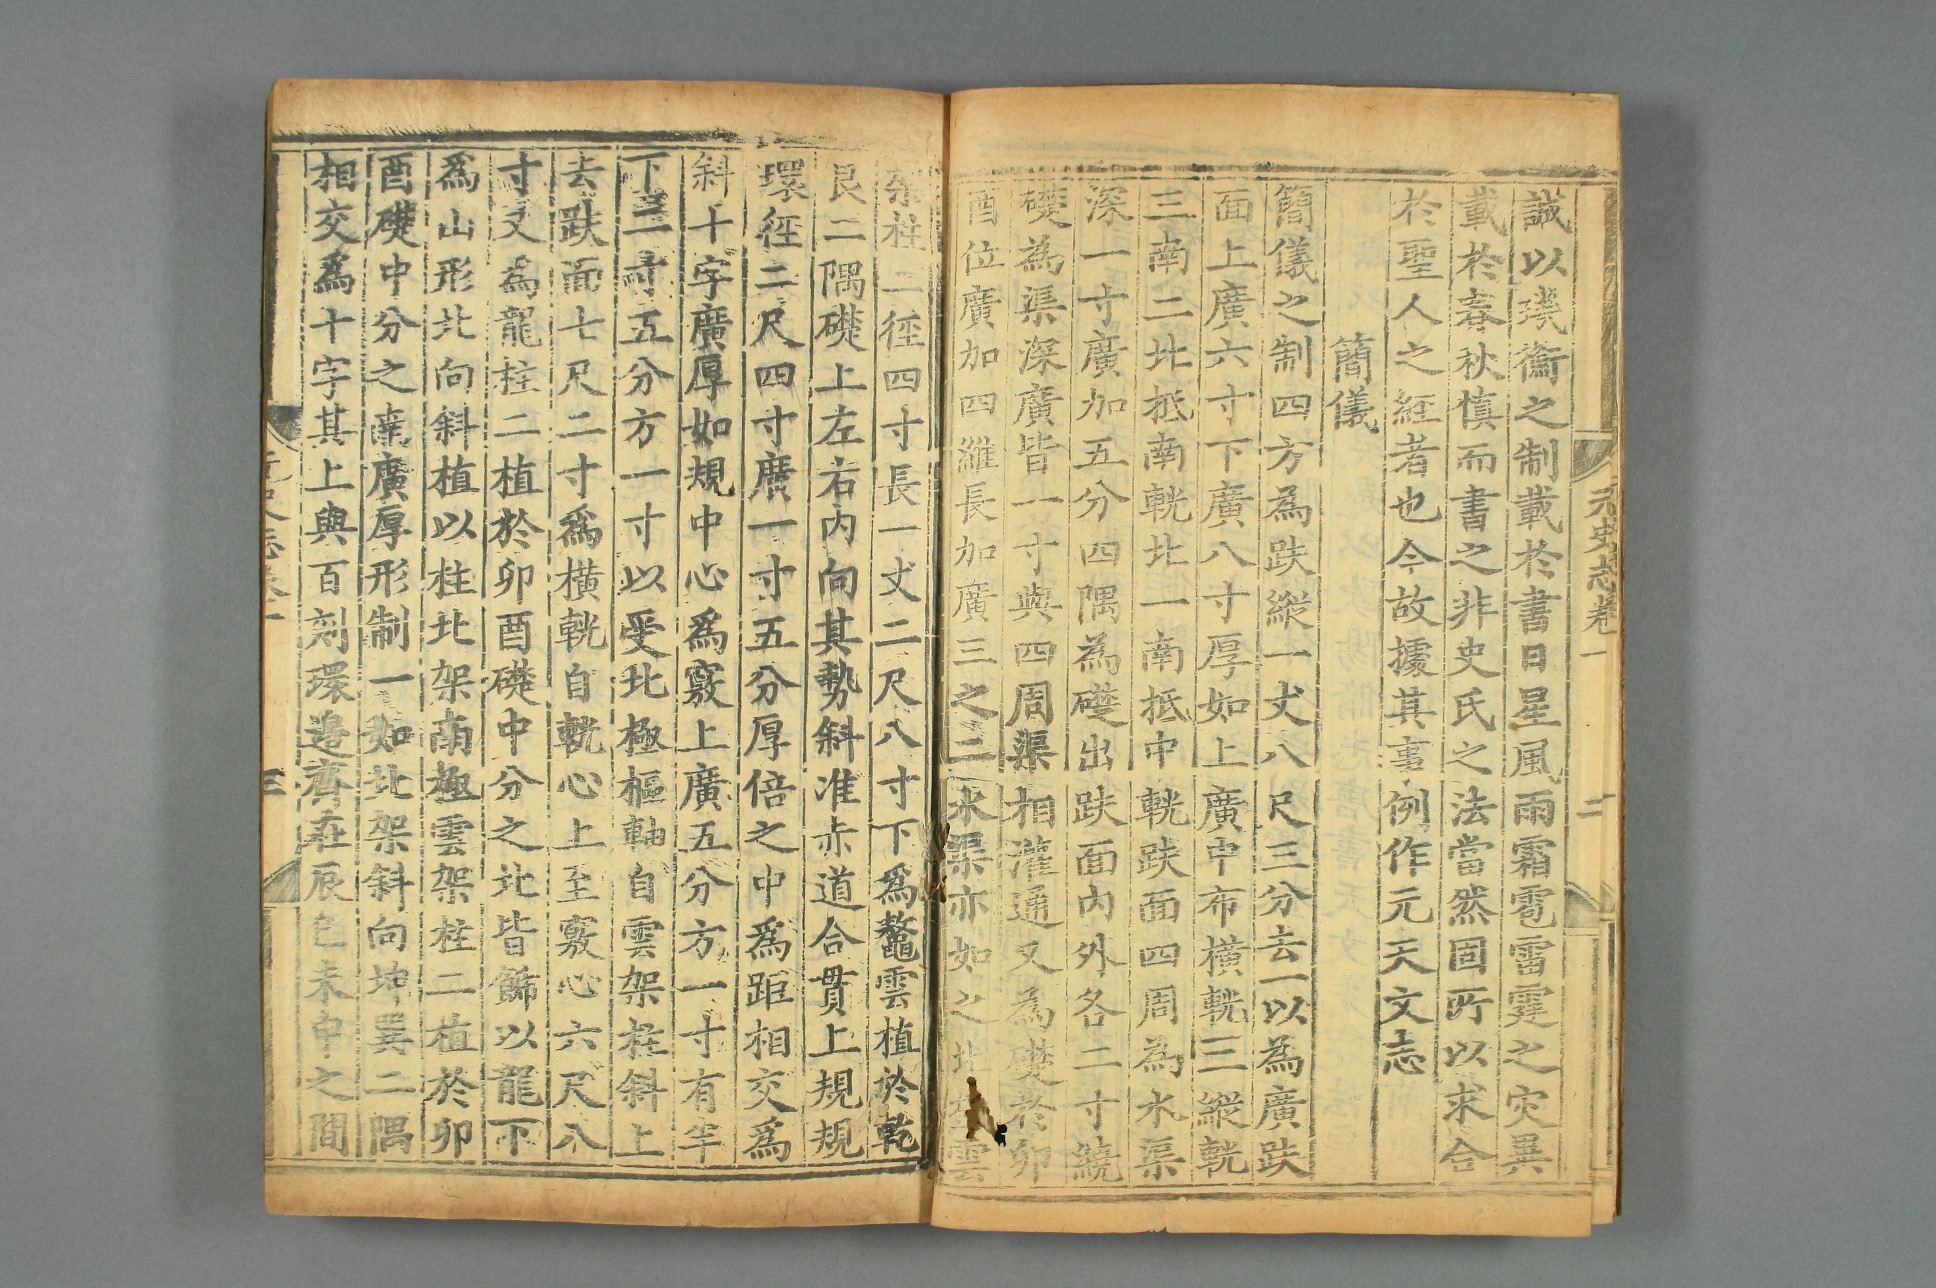 元史志卷一
二
誠以璣衡之制載於書日星風雨霜雹雷霆之灾異
載於春秋慎而書之非史氏之法當然固所以求合
於聖人之經者也今故據其事例作元天文志
簡儀
簡儀之制四方為趺縱一丈八尺三分去一以為廣趺
面上廣六寸下廣八寸厚如上廣中布横輄三縱輄
三南二北抵南輄北一南抵中輄趺面四周為水渠
深一寸廣加五分四隅為礎出趺面内外各二寸繞
礎為渠深廣皆一寸與四周渠相灌通又為礎於卯
酉位廣加四維長加廣三之二水渠亦如之北雲
架柱二徑四寸長一丈二尺八寸下爲鼇雲植於乾
艮二隅礎上左右内向其勢斜准赤道合貫上規規
環徑二尺四寸廣一寸五分厚倍之中爲距相交爲
斜十字廣厚如規中心爲竅上廣五分方一寸有半
下二寸五分方一寸以受北極樞軸自雲架柱斜上
去趺面七尺二寸爲横輄自輄心上至竅心六尺八
寸又爲龍柱二植於卯酉礎中分之北皆飾以龍下
爲山形北向斜植以柱北架南極雲架柱二植於卯
酉礎中分之南廣厚形制一如北架斜向坤巽二隅
相交爲十字其上與百刻環邊齊在辰巳未申之間
三